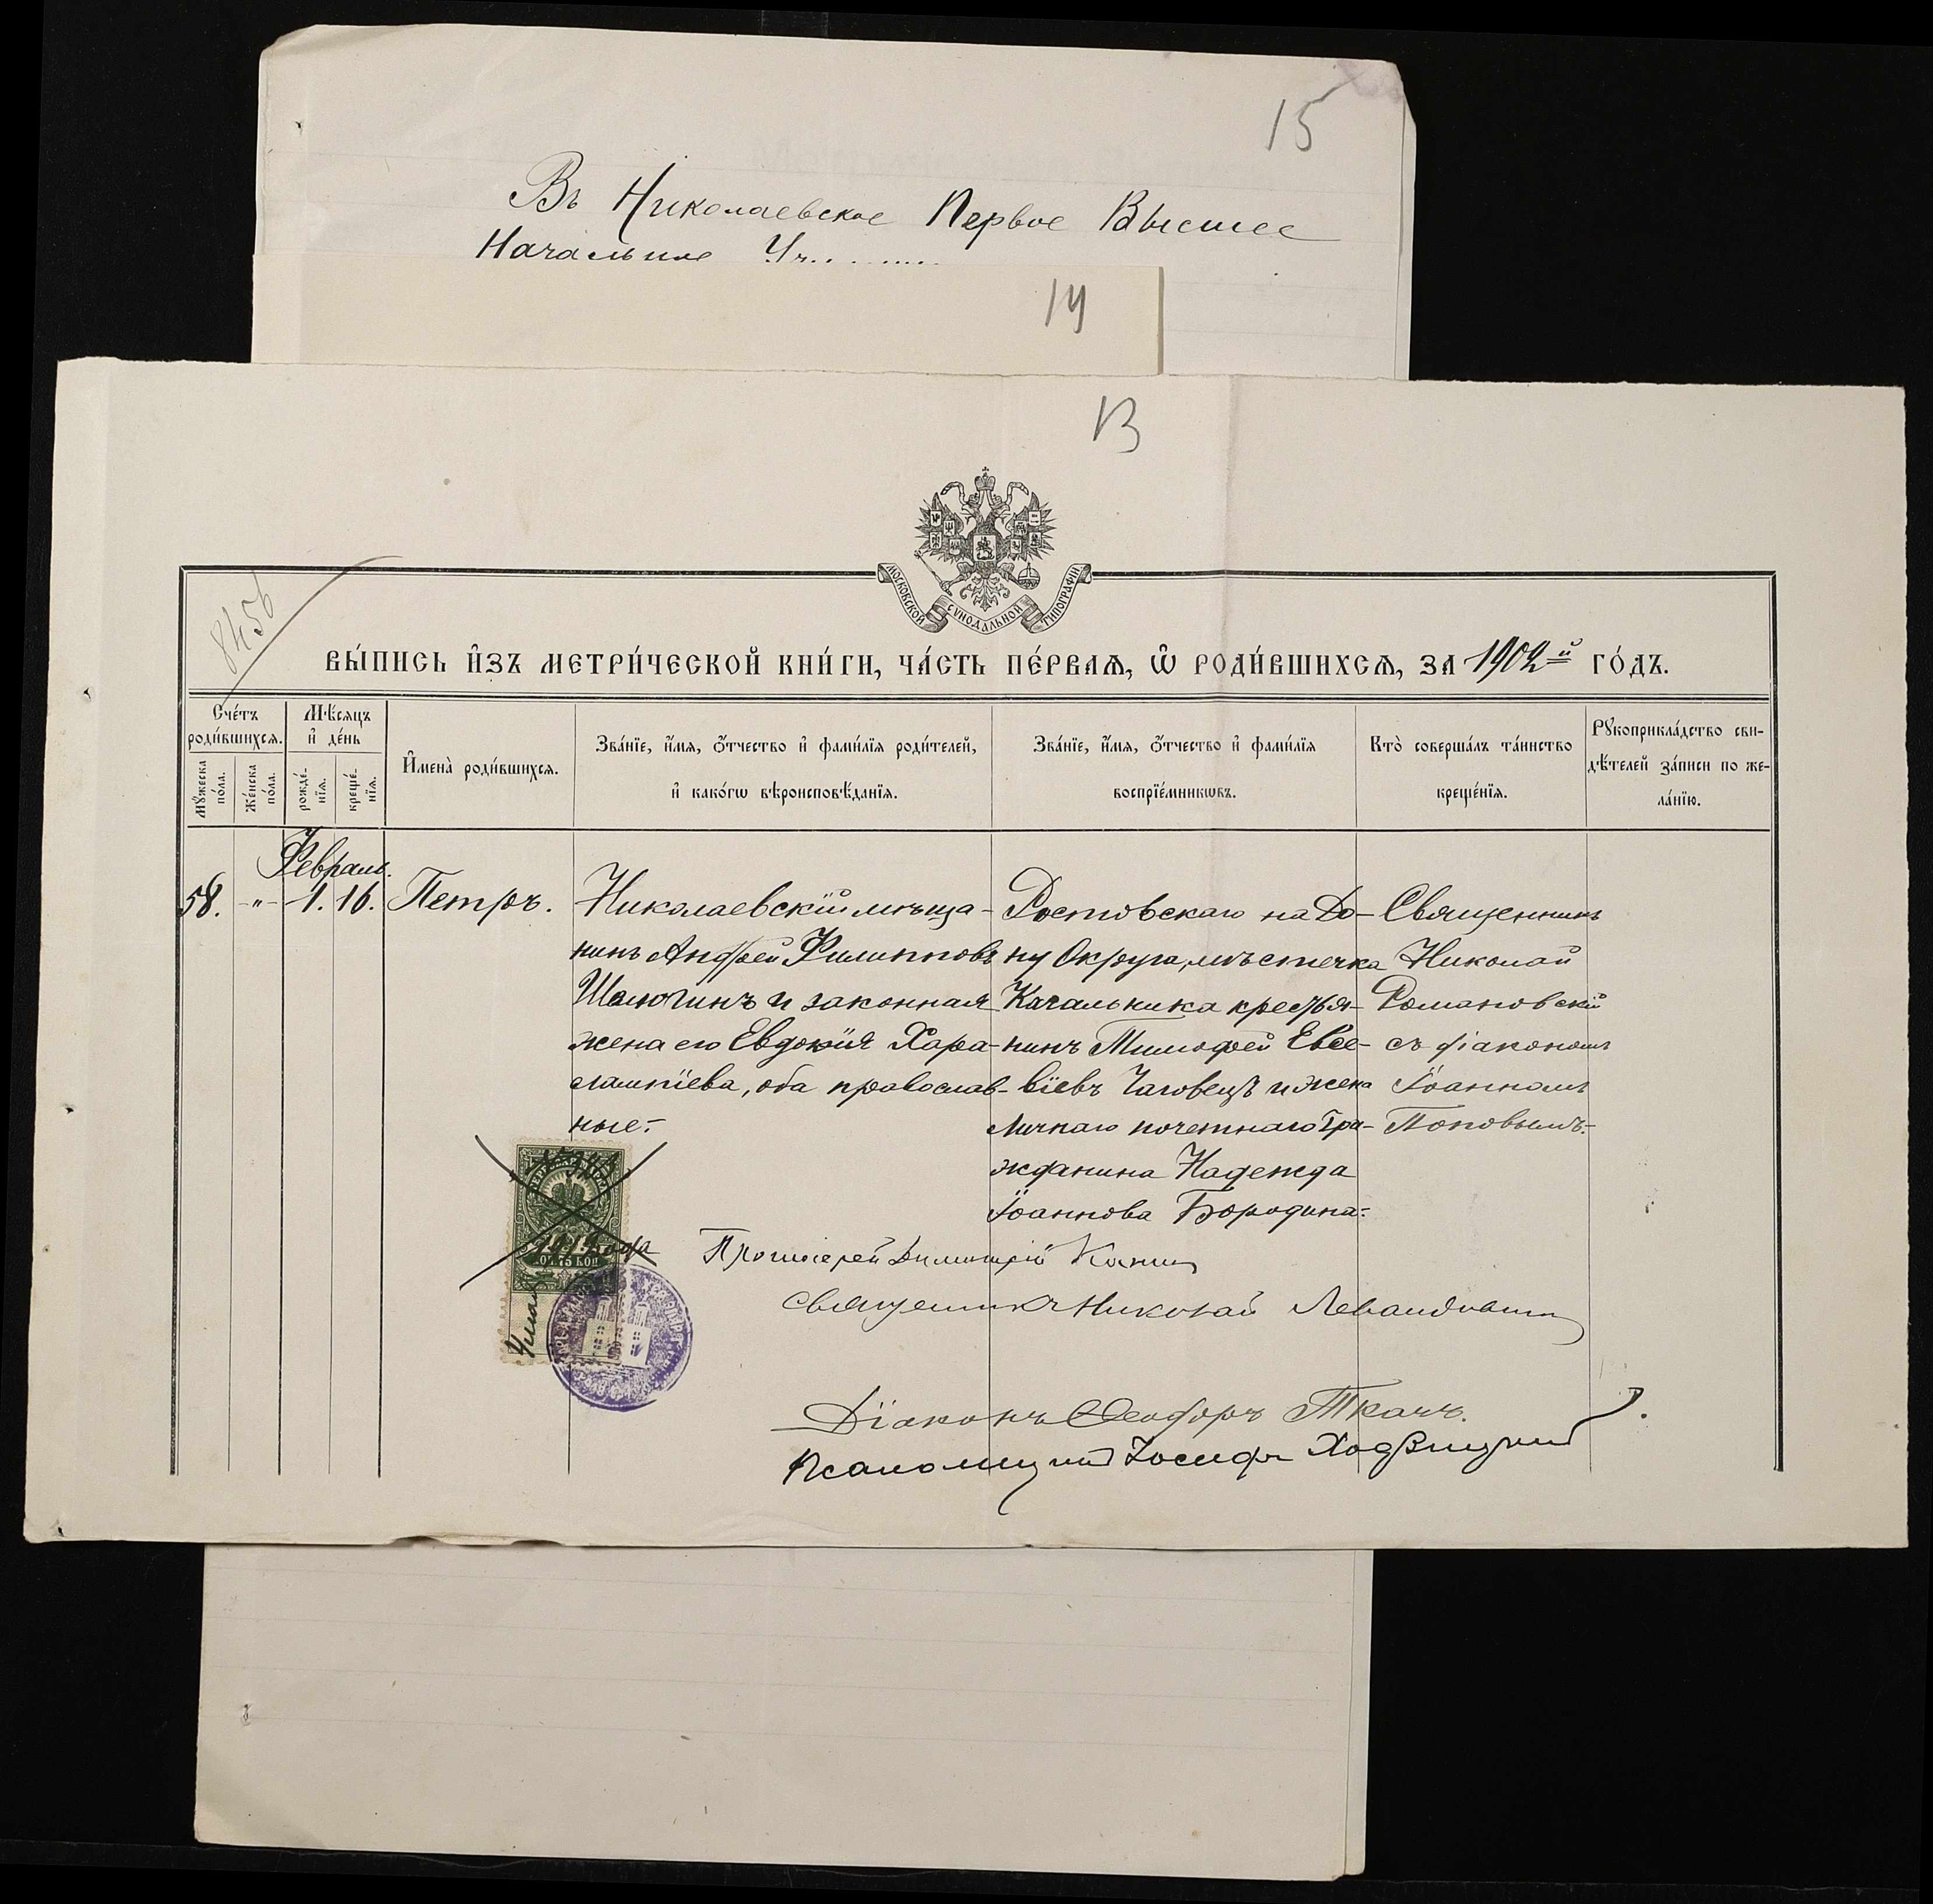 15
Въ Николаевское Первое Высшее
Начальное
14
13
МОСКОВСКОЙ СѴНОДАЛЬНОЙ ТИПОГРАФІИ
8456
ВЫ́ПИСЬ И҆ЗЪ МЕТРИ́ЧЕСКОЙ КНИ́ГИ, ЧА́СТЬ ПЕ́РВАѦ, Ѡ҆ РОДИ́ВШИХСѦ, ЗА 1902й ГО́ДЪ.
Сче́тъ роди́вшихсѧ.
Мꙋ́жеска по́ла.
Же́нска по́ла.
Мѣ́сяцъ и҆ де́нь
рожде́нїѧ.
креще́нїѧ.
И҆мена̀ роди́вшихсѧ.
Зва́нїе, и҆́мѧ, ѻ҆́тчество и҆ фами́лїѧ роди́телей,
и҆ како́гѡ вѣроисповѣ́данїѧ.
Зва́нїе, и҆́мѧ, ѻ҆́тчество и҆ фами́лїѧ
воспрїе́мникѡвъ.
Кто̀ соверша́лъ та́инство
креще́нїѧ.
Рꙋкоприкла́дство сви-
дѣ́телей за́писи по же-
ла́нїю.
Февраль.
58. -"- 1. 16. Петръ.
Николаевскій мѣща-
нинъ Андрей Филипповъ
Шалюгинъ и законная
жена его Евдокія Хара-
лампіева, оба православ-
ные.-
Ростовскаго на До-
ну Округа, мѣстечка
Кагальника крестья-
нинъ Тимофей Евсе-
віевъ Чаговецъ и жена
личнаго почетнаго Гра-
жданина Надежда
Іоаннова Бородина.-
Священникъ
Николай
Романовскій
съ діакономъ
Іоанномъ
Поповымъ.-
75 КОП
Протоіерей Димитрій
Священникъ Николай
Діаконъ Ѳеодоръ Ткачъ.
Псаломщикъ Іосифъ